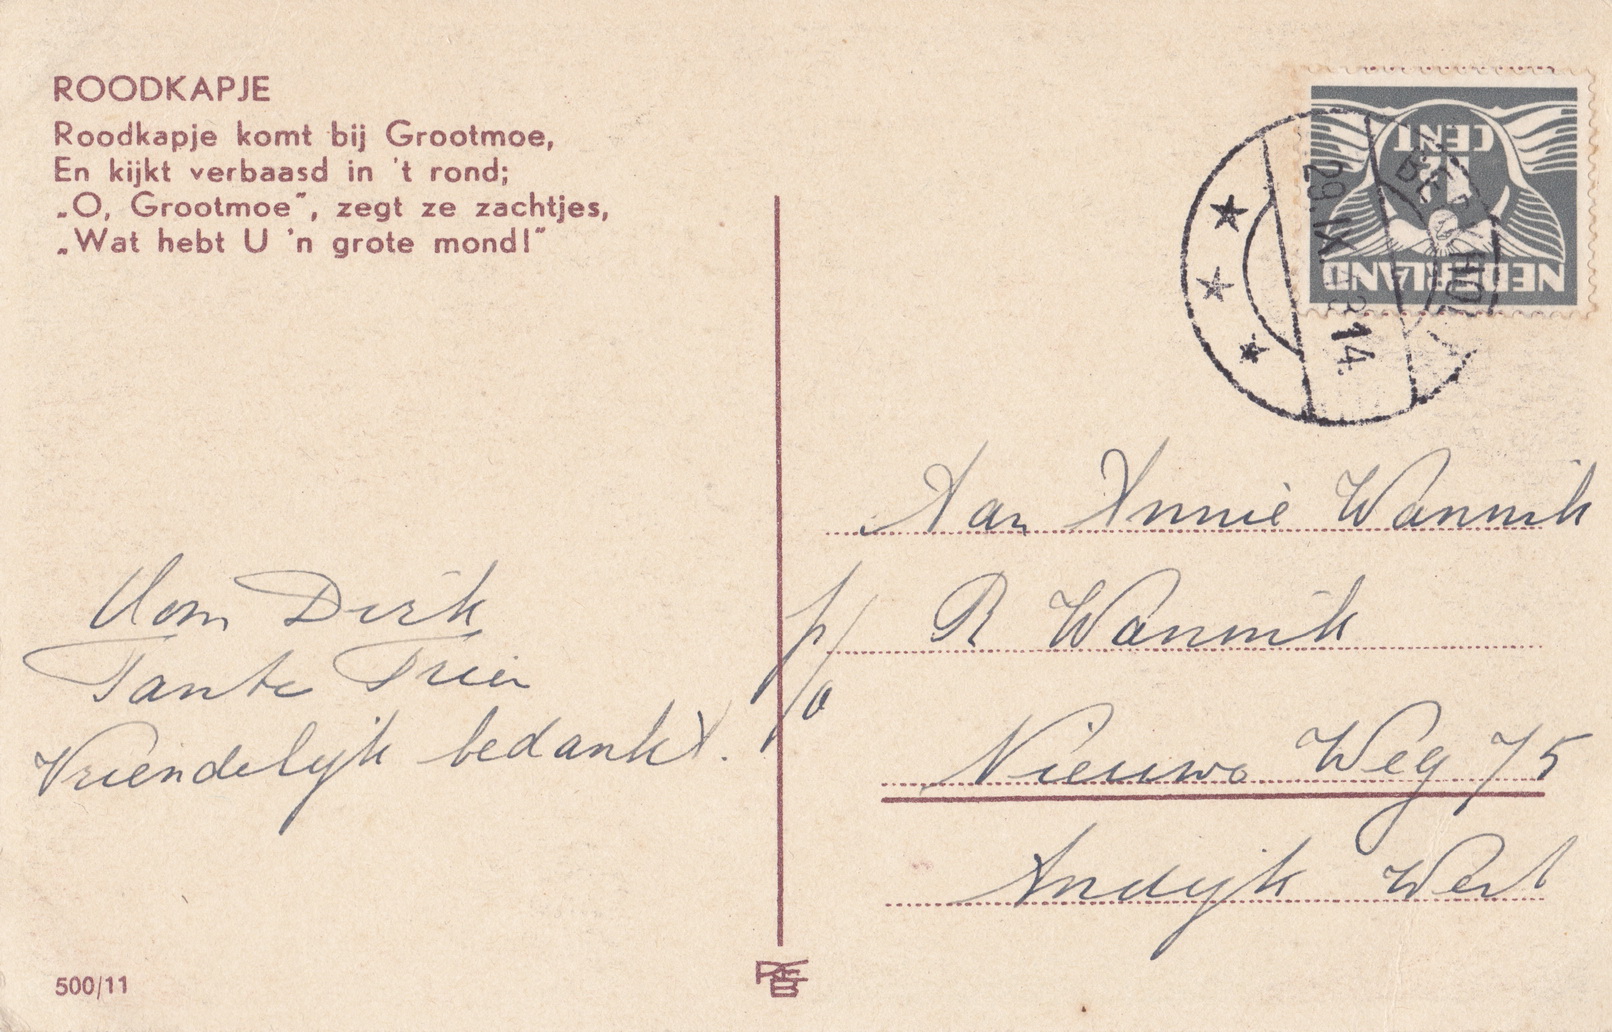 ROODKAPJE
Roodkapje komt bij Grootmoe,
En kijkt verbaasd in 't rond;
„O, Grootmoe”, zegt ze zachtjes,
„Wat hebt U 'n grote mond!”
NEDERLAND
CENT
29.IX. 14.
Aan Annie Wannik
p/o R Wannik
Nieuwe Weg 75
Andijk West
Oom Dirk
Tante Trien
Vriendelijk bedankt.
500/11